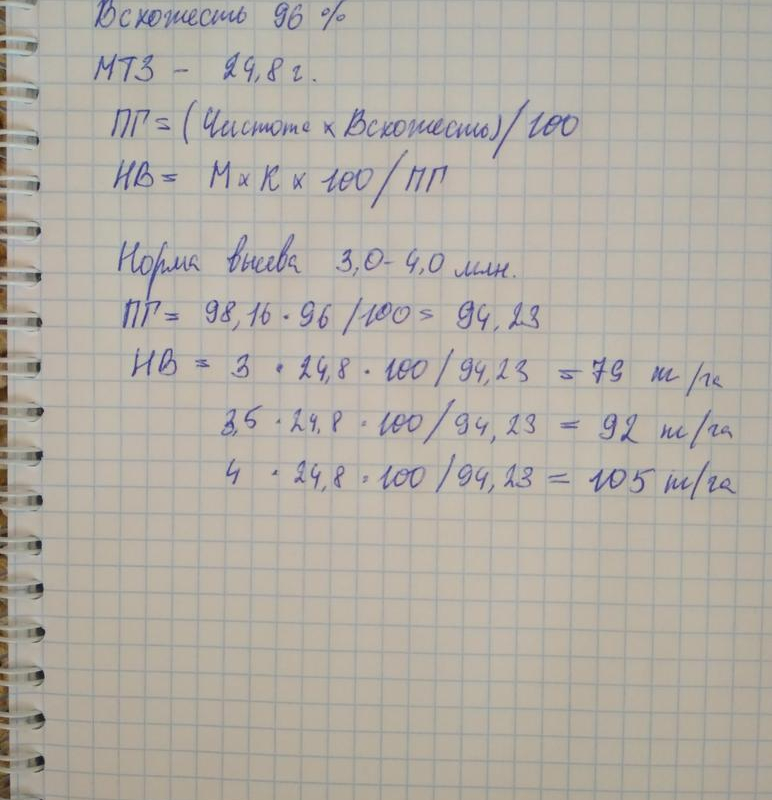 Всхожесть 96 %
МТЗ - 24,8 г.
ПГ = (Чистота х Всхожесть) / 100
НВ = М х К х 100 / ПГ
Норма высева 3,0 - 4,0 млн.
ПГ = 98,16 · 96 / 100 = 94,23
НВ = 3 · 24,8 · 100 / 94,23 = 79 т/га
3,5 · 24,8 · 100 / 94,23 = 92 т/га
4 · 24,8 · 100 / 94,23 = 105 т/га